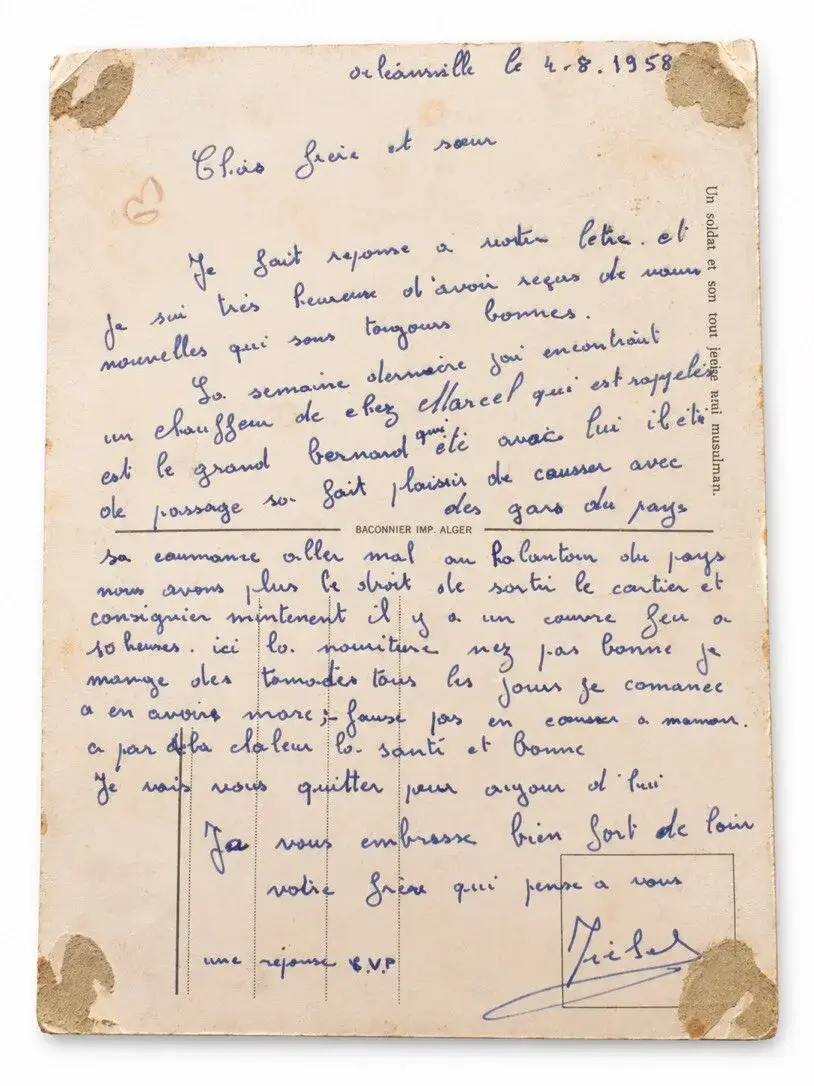 orléansville le 4-8.1958
Chers frère et sœur
Je fait reponse a votre letre. et
je sui très heureuse d'avoir reçus de vous
nouvelles qui sons tougours bonnes.
La semaine dernière jai encontrait
un chauffeur de chez Marcel qui est rappelés
est le grand bernard qui été avac lui il été
de passage sa fait plaisir de causser avec
des gars du pays
BACONNIER IMP. ALGER
sa coumance aller mal au du pays
nous avons plus le droit de sortir le cartier et
consignier mintenent il y a un couvre feu a
10 heures. ici la nouriture nez pas bonne je
mange des tomades tous les jours je comance
a en avoire marc; fause pas en cousser a maman.
a par la chaleur la santé et bonne
Je vais vous quitter pour aujour d'hui
Ja vous embrasse bien fort de loin
votre frère qui pense a vous
une réponse S.V.P
Un soldat et son tout musulman.